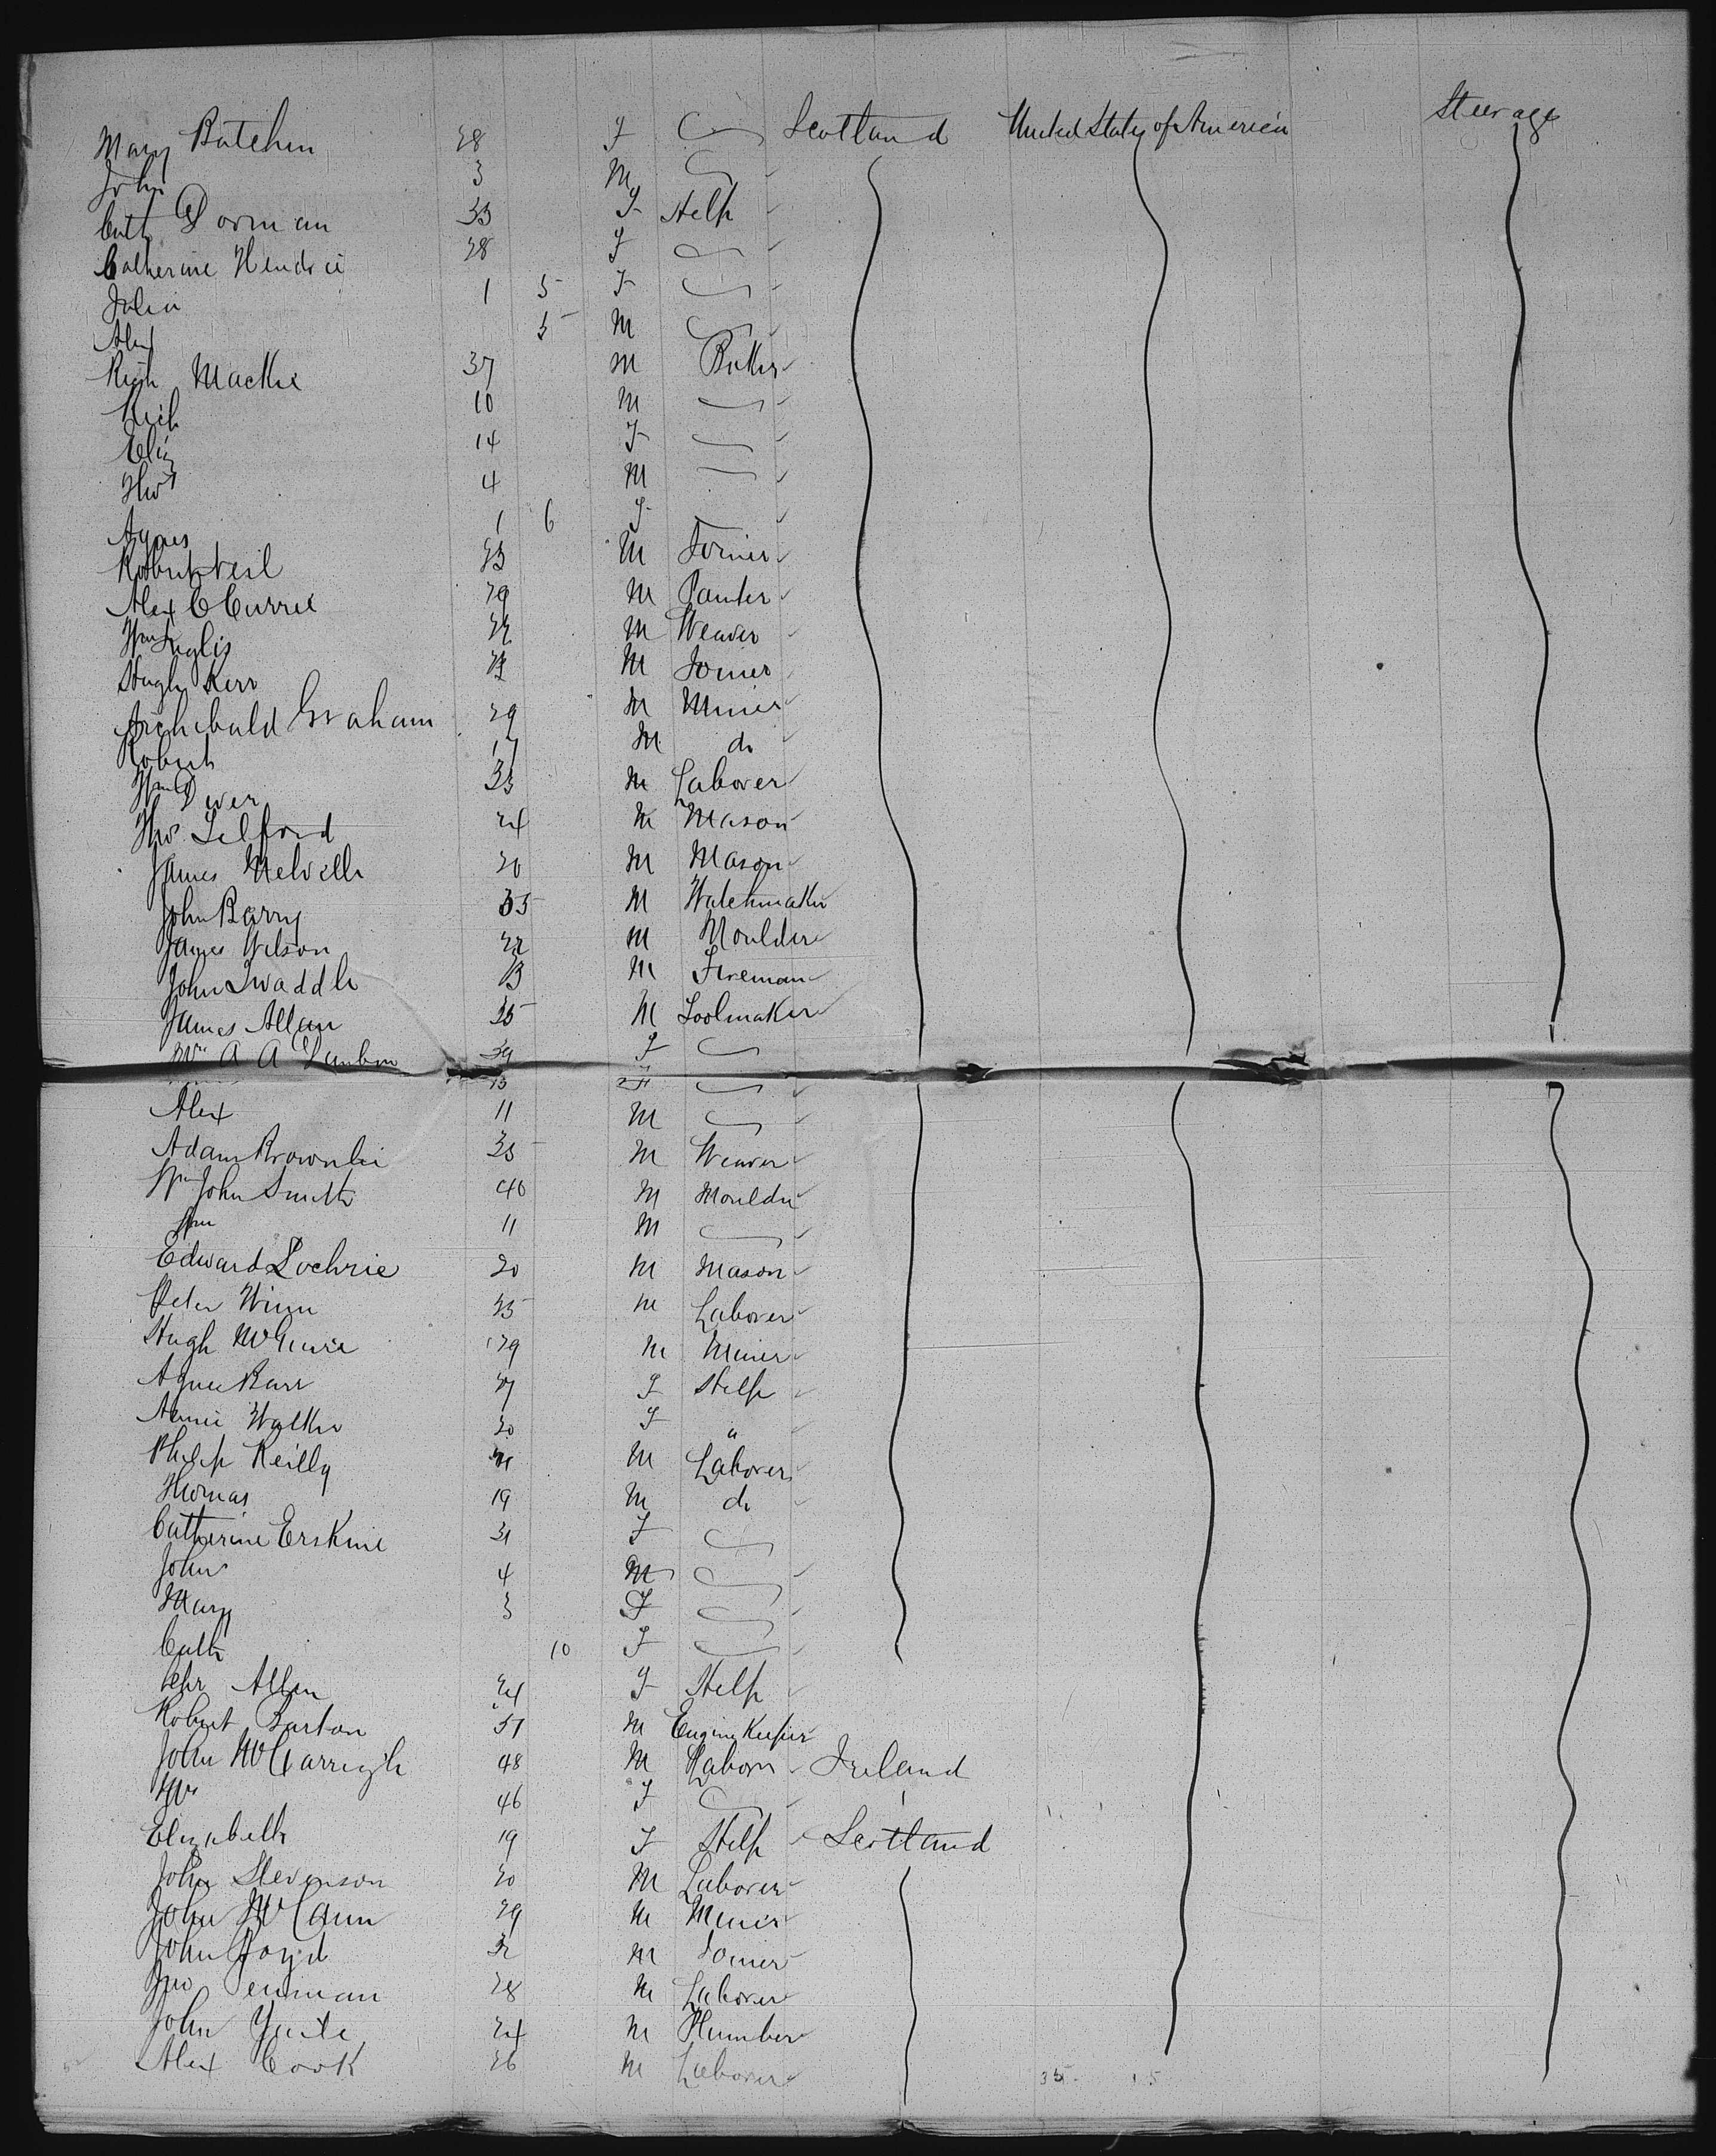 Mary Butchin 28 F Scotland United States of America Steerage
John 3 M
Cath Dorman 33 F Help
Catherine Hendrie 28 F
Julia 1 5 F
Alex 5 M
Rich Mackie 37 M Baker
Rich 10 M
Eliz 14 F
Thos 4 M
Agnes 1 6 F
Robert Neil 23 M Joiner
Alex C Currie 29 M Painter
Wm Inglis 22 M Weaver
Hugh Kerr M Joiner
Archibald Graham 29 M Miner
Robert 17 M do
Wm Dwer 33 M Laborer
Thos Telford 24 M Mason
James Melville 20 M Mason
John Barry 35 M Watchmaker
James Wilson 22 M Moulder
John Twaddle M Fireman
James Allan 25 M Toolmaker
Mrs A A 39 F
13 F
Alex 11 M
Adam Brownlie 35 M Weaver
Wm John Smith 40 M Moulder
Wm 11 M
Edward Lochrie 20 M Mason
Peter Winn 35 M Laborer
Hugh McGuire 29 M Miner
Agnes Barr F Help
Annie Walker 20 F "
Philip Reilly M Laborer
Thomas 19 M do
Catherine Erskine 31 F
John 4 M
Mary 3 F
Cath 10 F
Chr Allan 24 F Help
Robert Barton 51 M Engine Keeper
John McGarrigle 48 M Laborer Ireland
46 F
Elizabeth 19 F Help Scotland
John Stevenson 20 M Laborer
John McCann 29 M Miner
John Boyd 32 M Joiner
Penman 28 M Laborer
John Yuile 24 M Plumber
Alex Cook 26 M Laborer